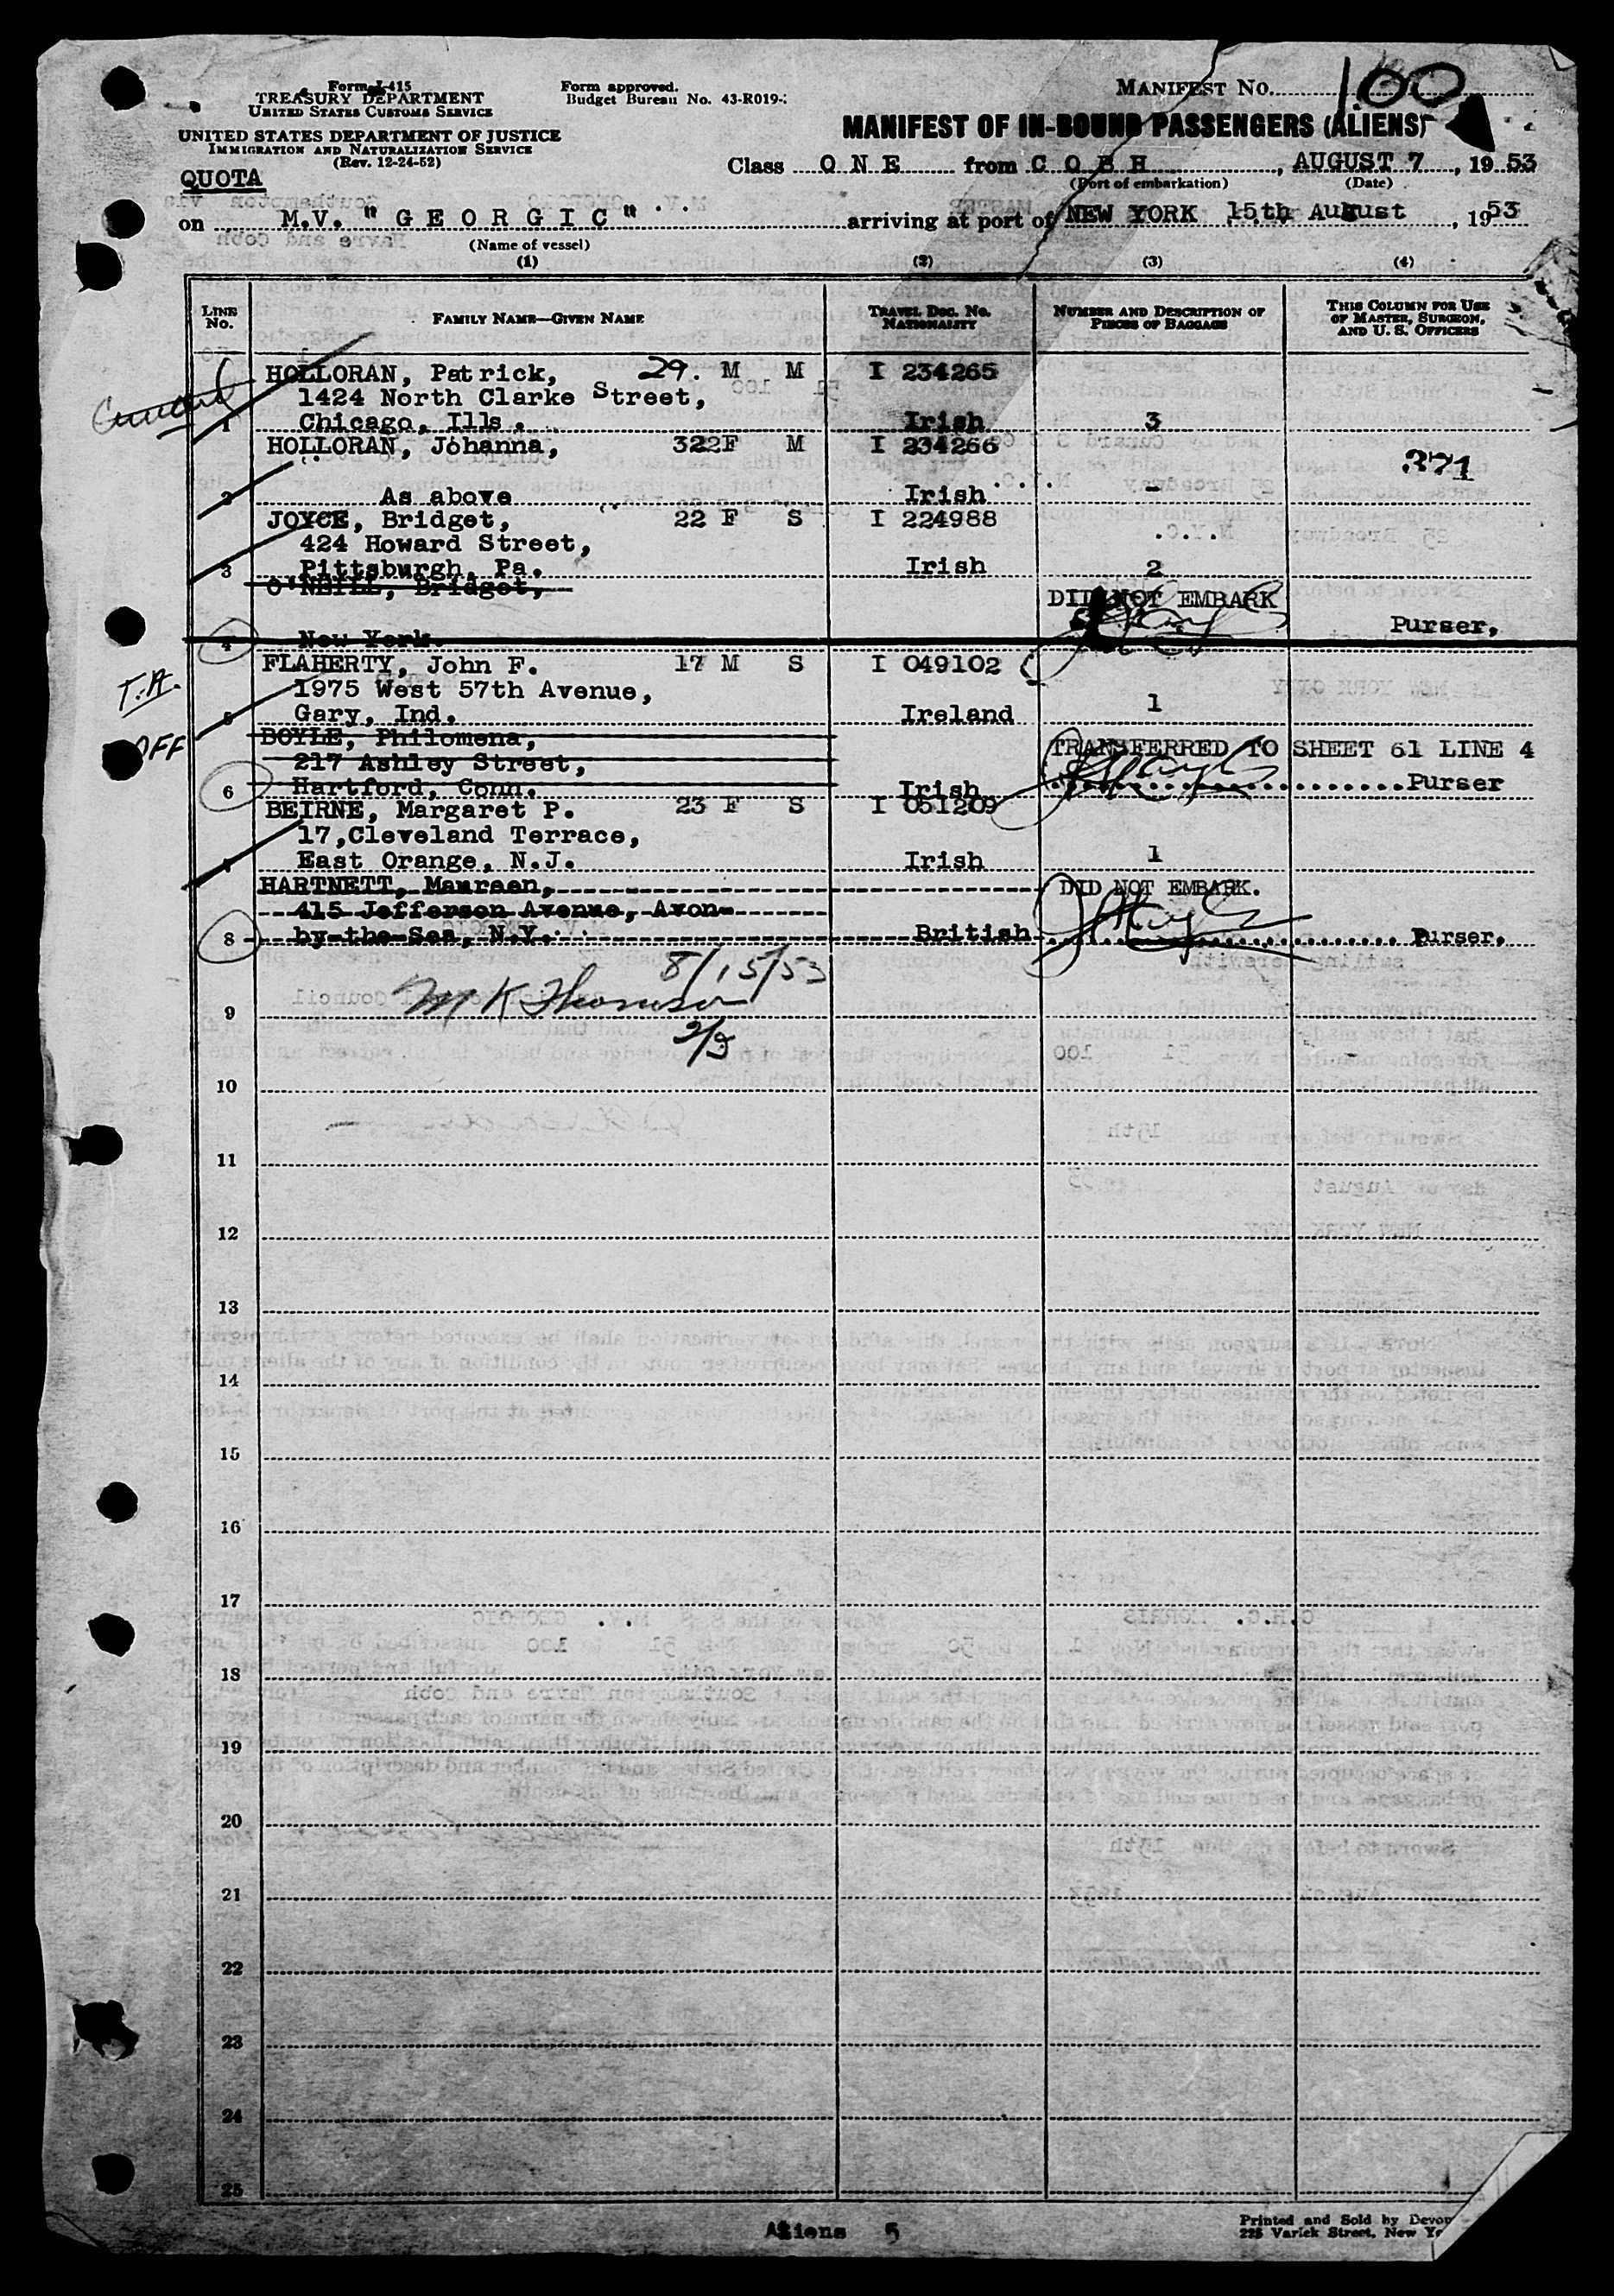 Form I-415
TREASURY DEPARTMENT
UNITED STATES CUSTOMS SERVICE
UNITED STATES DEPARTMENT OF JUSTICE
IMMIGRATION AND NATURALIZATION SERVICE
(Rev. 12-24-52)
Form approved.
Budget Bureau No. 43-R019-
MANIFEST No. 100
MANIFEST OF IN-BOUND PASSENGERS (ALIENS)
Class O N E from C O B H, AUGUST 7, 19 53
(Port of embarkation) (Date)
QUOTA
on M.V. " G E O R G I C " arriving at port of NEW YORK 15th August, 19 53
(Name of vessel)
(1) (2) (3) (4)
LINE No. FAMILY NAME—GIVEN NAME TRAVEL DOC. NO. NATIONALITY NUMBER AND DESCRIPTION OF PIECES OF BAGGAGE THIS COLUMN FOR USE OF MASTER, SURGEON, AND U. S. OFFICERS
HOLLORAN, Patrick, 29. M M I 234265
1424 North Clarke Street,
1 Chicago, Ills. Irish 3
HOLLORAN, Johanna, 322F M I 234266
371
2 As above Irish -
JOYCE, Bridget, 22 F S I 224988
424 Howard Street,
3 Pittsburgh, Pa. Irish 2
O'NEILL, Bridget,
DID NOT EMBARK
4 New York. Purser,
FLAHERTY, John F. 17 M S I 049102
T.A. 1975 West 57th Avenue,
5 Gary, Ind. Ireland 1
OFF BOYLE, Philomena, TRANSFERRED TO SHEET 61 LINE 4
217 Ashley Street,
6 Hartford, Conn. Irish Purser
BEIRNE, Margaret P. 23 F S I 051209
17,Cleveland Terrace,
East Orange, N.J. Irish 1
HARTNETT, Maureen, DID NOT EMBARK.
415 Jefferson Avenue, Avon-
8 by-the-Sea, N.Y. British Purser.
8/15/53
9
10
11
12
13
14
15
16
17
18
19
20
21
22
23
24
25
Aliens 5
Printed and Sold by
225 Varick Street, New